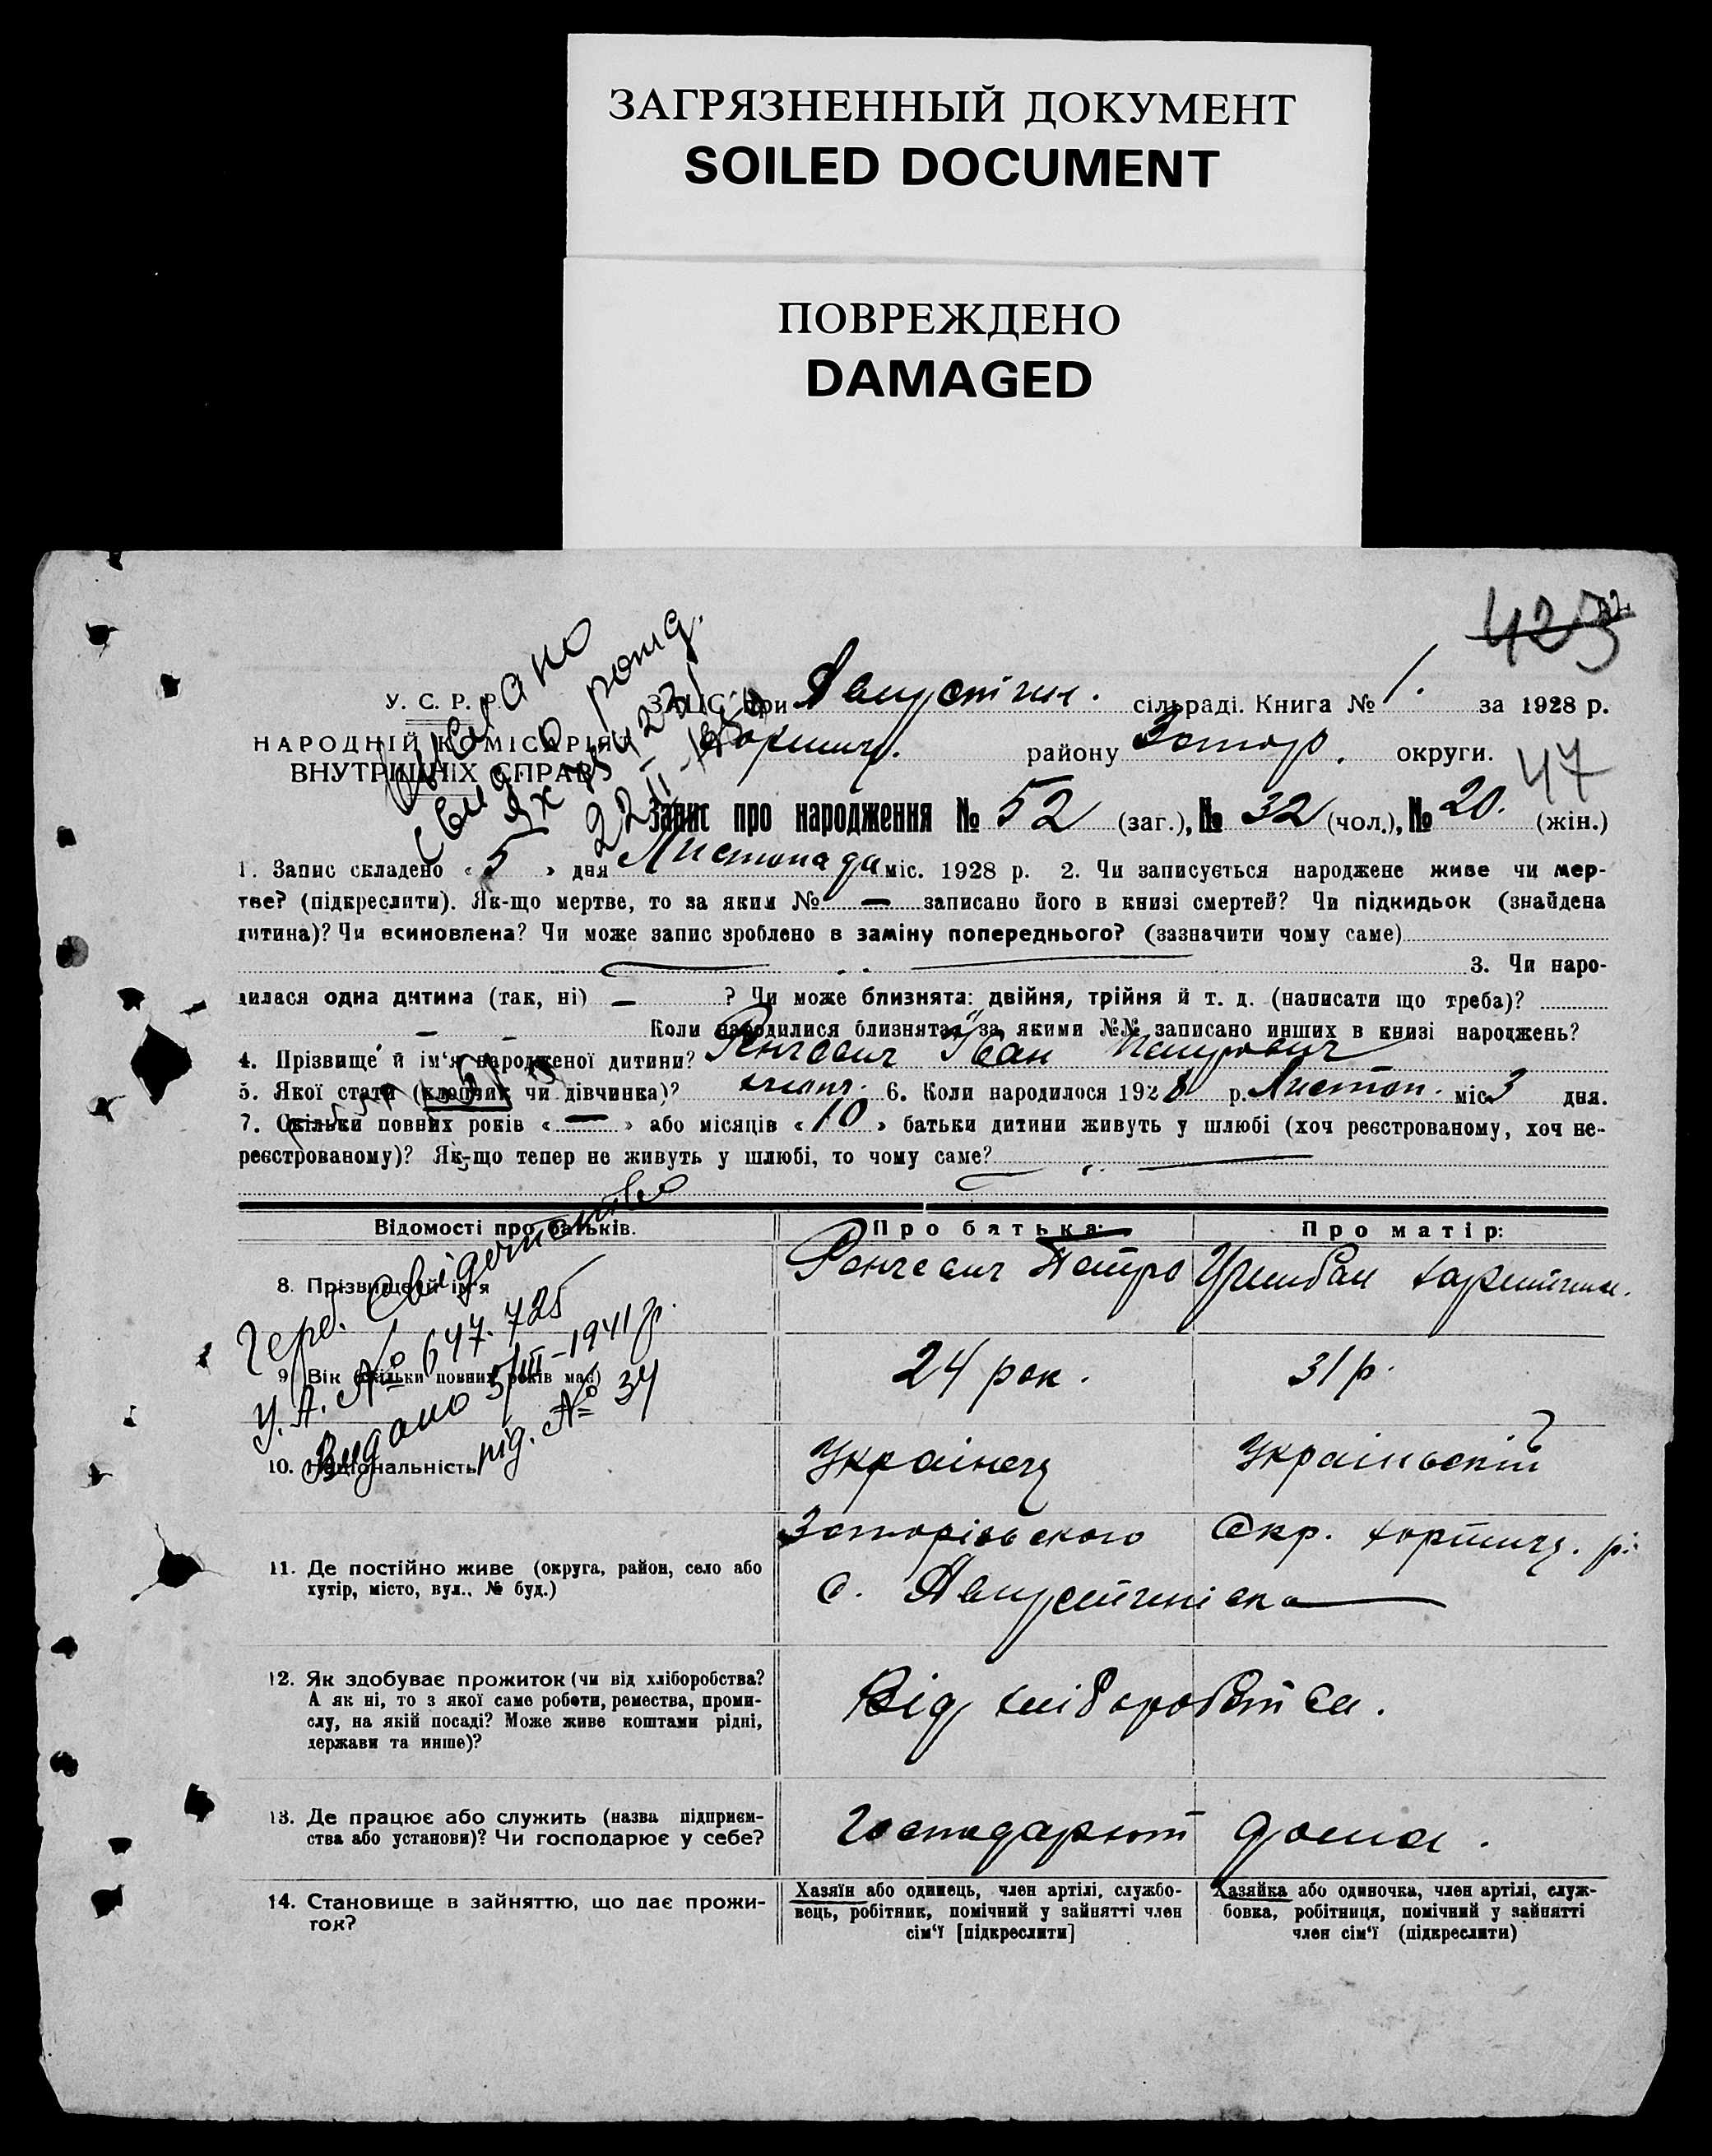 ЗАГРЯЗНЕННЫЙ ДОКУМЕНТ
SOILED DOCUMENT
ПОВРЕЖДЕНО
DAMAGED
423
У. С. Р. Р.
НАРОДНІЙ КОМІСАРІЯТ
ВНУТРІШНІХ СПРАВ
ЗАГС при сільраді. Книга № 1. за 1928 р.
району округи.
47
Запис про народження № 52 (заг.), № 32 (чол.), № 20. (жін.)
1. Запис складено « 5 » дня Листопада міс. 1928 р. 2. Чи записується народжене живе чи мер-
тве? (підкреслити). Як-що мертве, то за яким № — записано його в книзі смертей? Чи підкидьок (знайдена
дитина)? Чи всиновлена? Чи може запис зроблено в заміну попереднього? (зазначити чому саме)
3. Чи наро-
дилася одна дитина (так, ні) — ? Чи може близнята: двійня, трійня й т. д. (написати що треба)?
— Коли народилися близнята, за якими №№ записано инших в книзі народжень?
4. Прізвище й ім'я народженої дитини? Іван Петрович
5. Якої стати (хлопчик чи дівчинка)? 6. Коли народилося 1928 р. Листоп. міс 3 дня.
7. Скільки повних років « — » або місяців « 10 » батьки дитини живуть у шлюбі (хоч реєстрованому, хоч не-
реєстрованому)? Як-що тепер не живуть у шлюбі, то чому саме?
Відомості про батьків. Про батька: Про матір:
8. Прізвище й ім'я Петро
Свідоцтво
У.А. № 647.725
Видано 5/III-1941 р.
під. № 34
9. Вік (скільки повних років має) 24 рок. 31 р.
10. Національність Українец
11. Де постійно живе (округа, район, село або
хутір, місто, вул., № буд.)
Окр. р.
с.
12. Як здобуває прожиток (чи від хліборобства?
А як ні, то з якої саме роботи, ремества, проми-
слу, на якій посаді? Може живе коштами рідні,
держави та инше)?
Від хліборобства.
13. Де працює або служить (назва підприєм-
ства або установи)? Чи господарює у себе?
Господарют дома.
14. Становище в зайняттю, що дає прожи-
ток?
Хазяїн або одинець, член артілі, службо-
вець, робітник, помічний у зайнятті член
сім'ї [підкреслити]
Хазяйка або одиночка, член артілі, служ-
бовка, робітниця, помічний у зайнятті
член сім'ї (підкреслити)